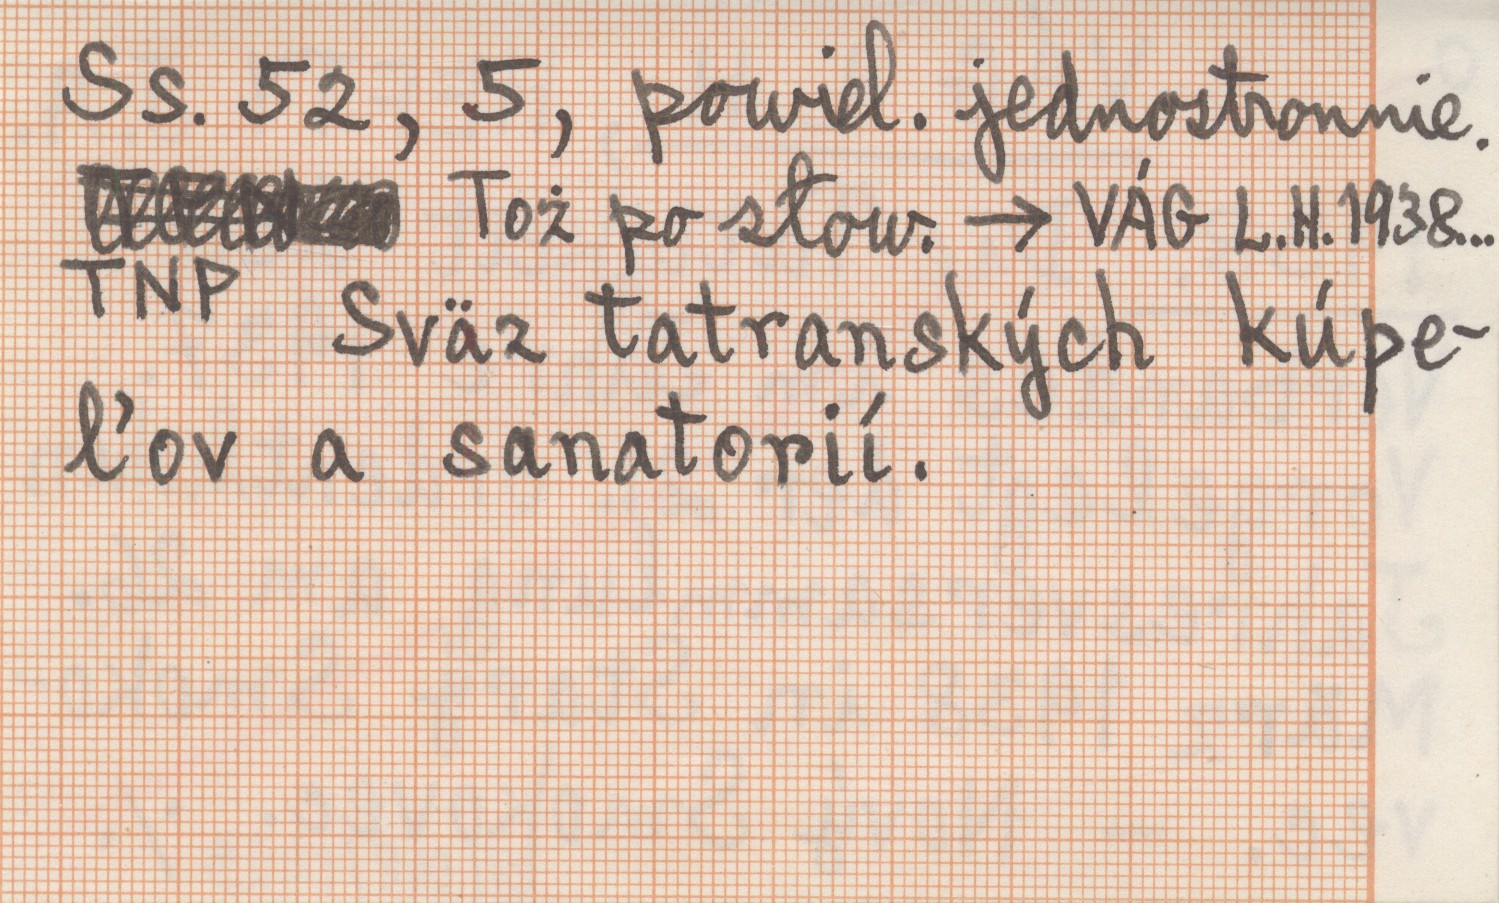 Ss. 52, 5, powiel. jednostronnie.
Toż po słow. → VÁG L.H. 1938...
TNP Sväz tatranských kúpe-
ľov a sanatorií.